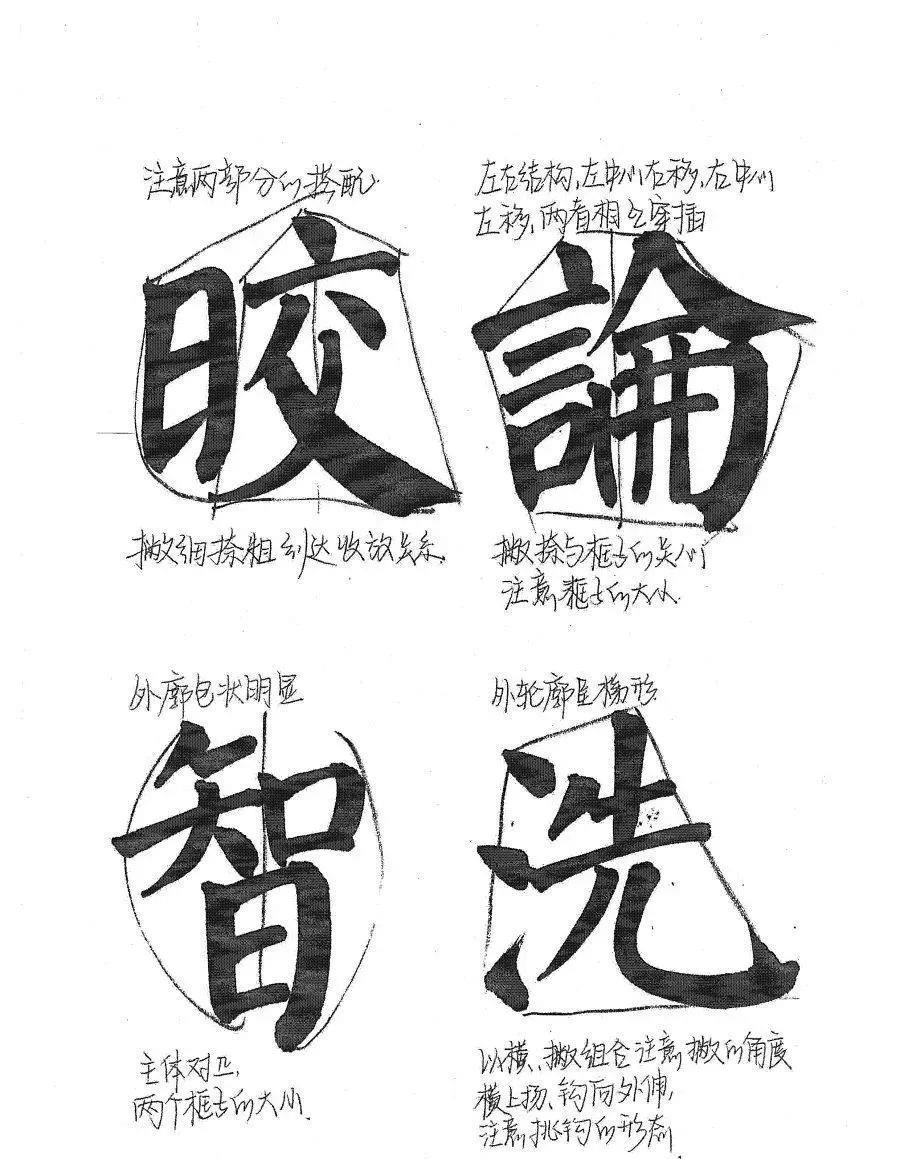 注意两部分的搭配
晈
撇细捺粗到达收放关系
左右结构,左中心右移,右中心
左移,两者相互穿插
論
撇捺与框子的关系
注意框子的大小.
外廓包状明显
智
主体对正,
两个框子的大小.
外轮廓呈梯形
洗
以横、撇组合注意撇的角度
横上扬、钩向外伸,
注意挑钩的形态